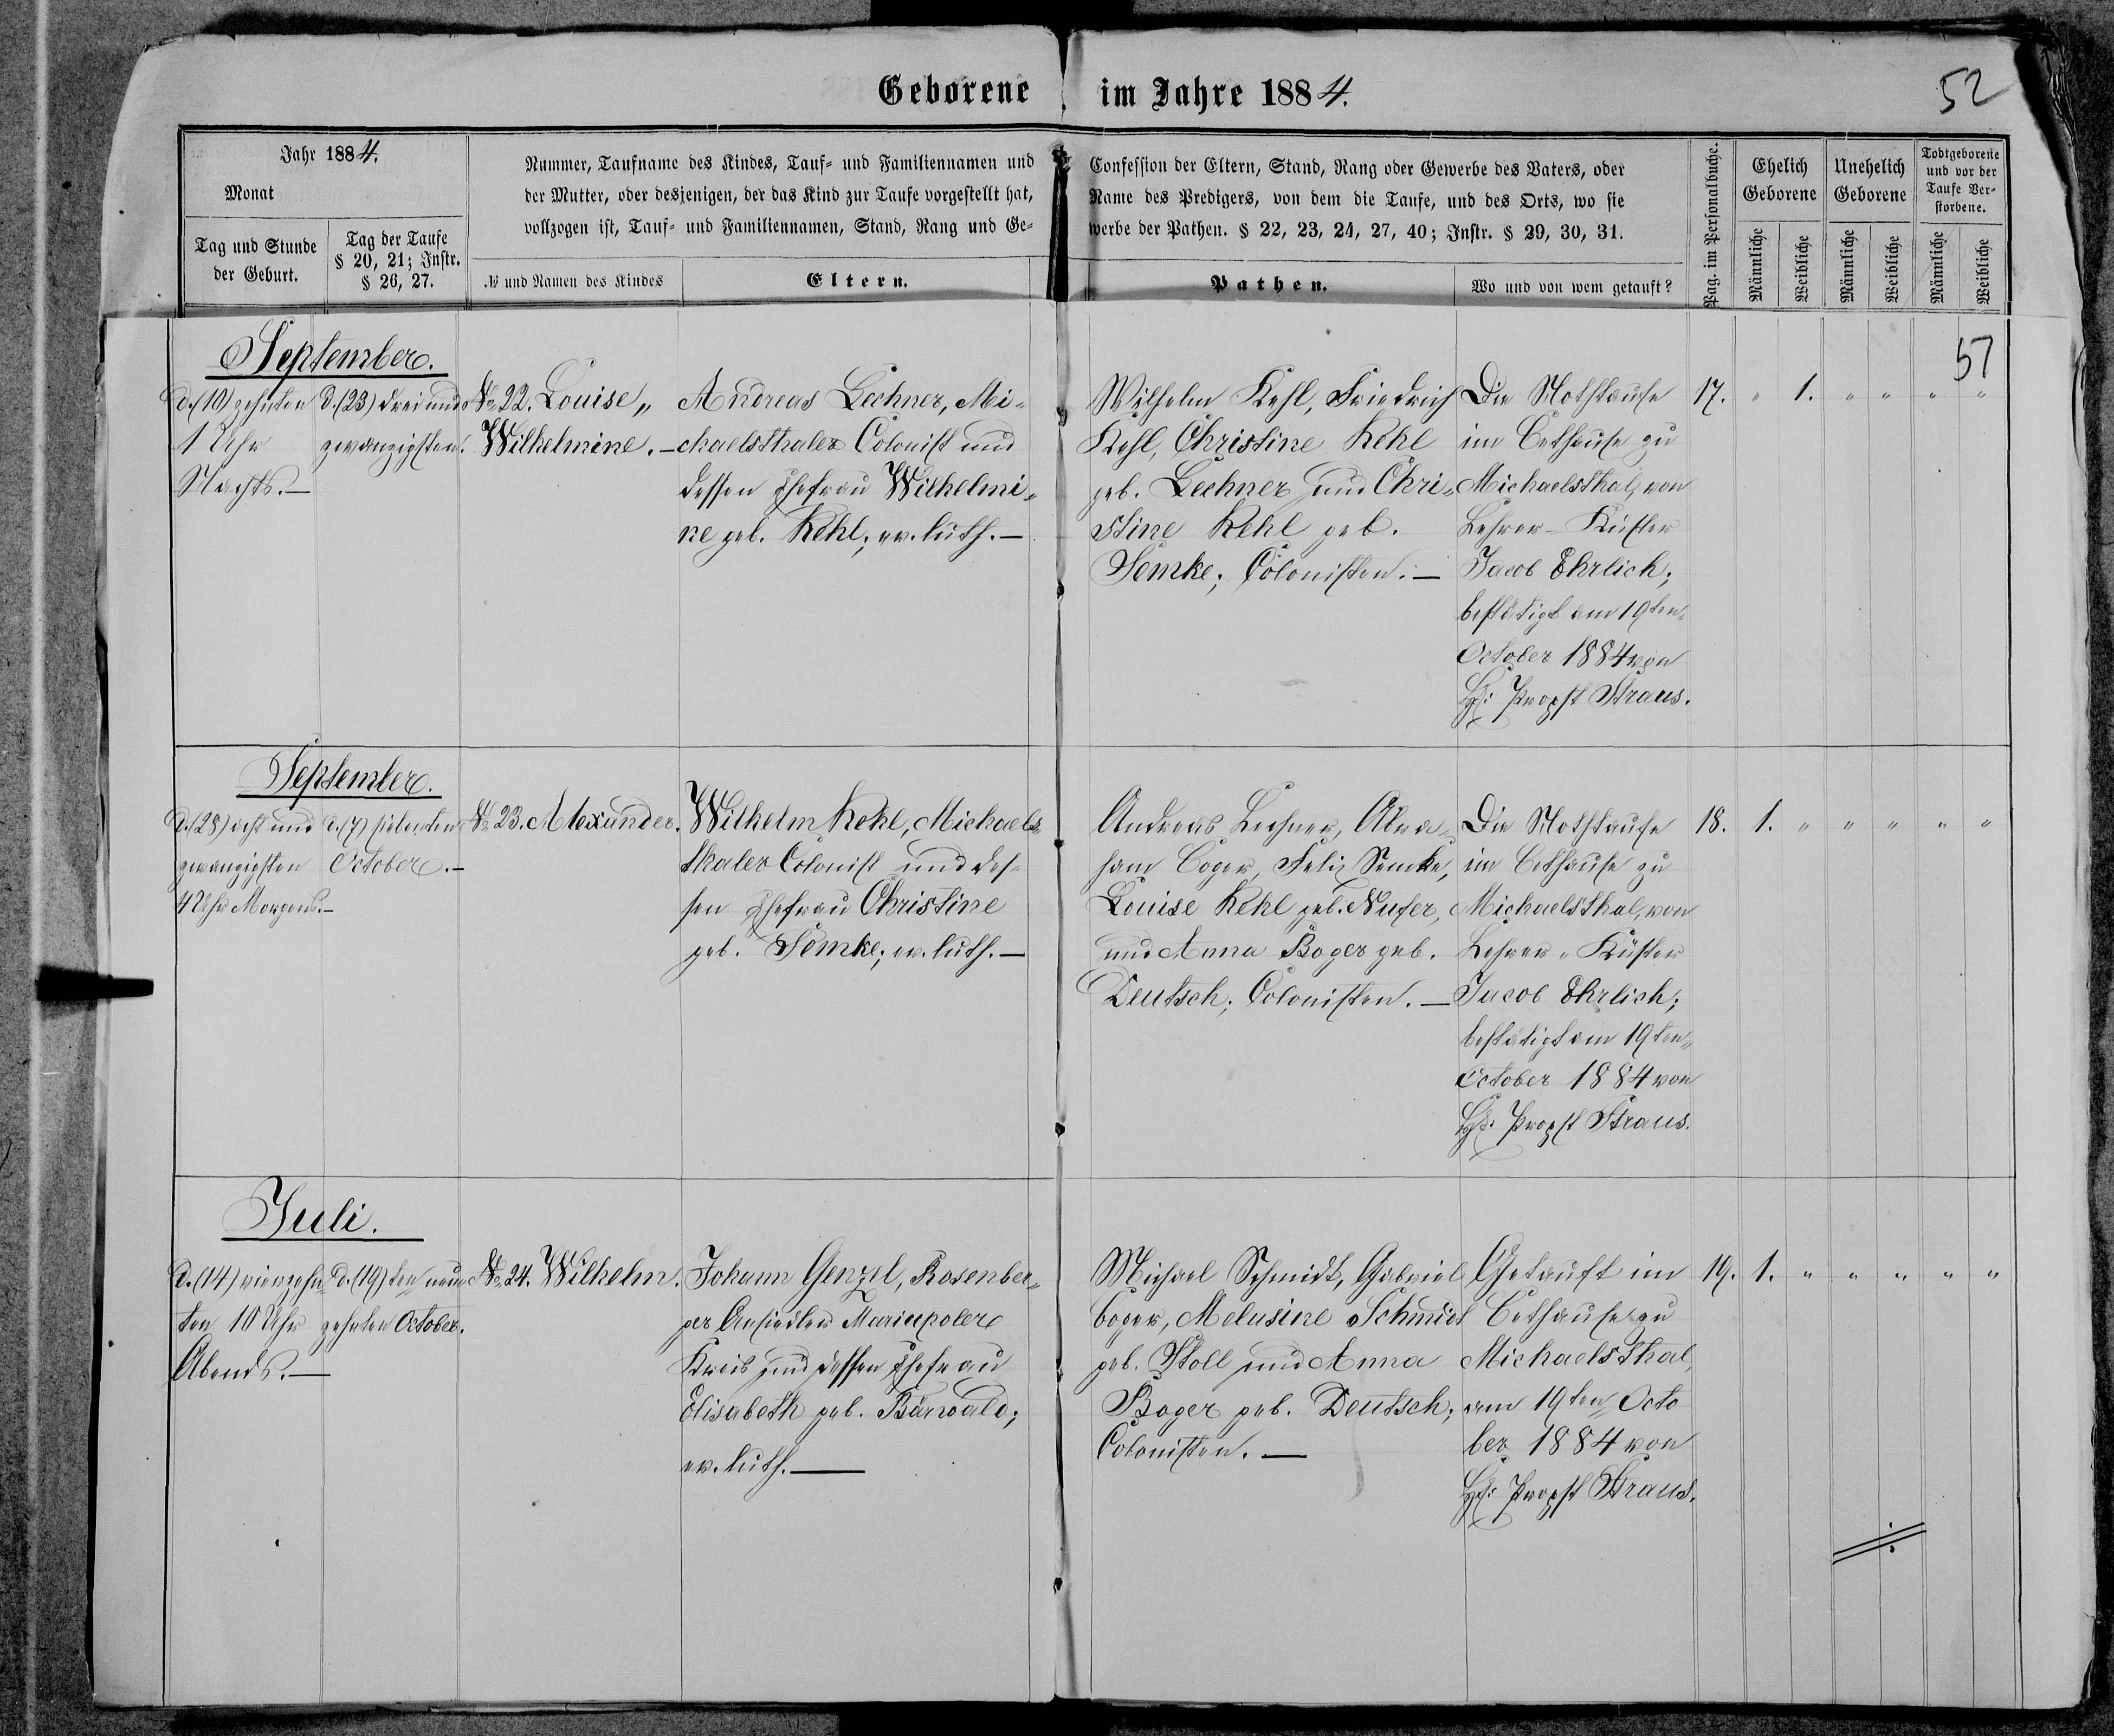 Geborene im Jahre 1884.
52
Jahr 1884.
Monat
Tag und Stunde
der Geburt.
Tag der Taufe
§ 20, 21; Instr.
§ 26, 27.
Nummer, Taufname des Kindes, Tauf- und Familiennamen und
der Mutter, oder desjenigen, der das Kind zur Taufe vorgestellt hat,
vollzogen ist, Tauf- und Familiennamen, Stand, Rang und Ge-
№ und Namen des Kindes
Eltern.
Confession der Eltern, Stand, Rang oder Gewerbe des Vaters, oder
Name des Predigers, von dem die Taufe, und des Orts, wo sie
werbe der Pathen. § 22, 23, 24, 27, 40; Instr. § 29, 30, 31.
Pathen.
Wo und von wem getauft?
Pag. im Personalbuche.
Ehelich
Geborene
Unehelich
Geborene
Todtgeborene
und vor der
Taufe Ver-
storbene.
Männliche
Weibliche
Männliche
Weibliche
Männliche
Weibliche
57
September.
d. (10) zehnten
1 Uhr
Nachts. —
d. (23) drei und
zwanzigsten.
№ 22. Louise„
Wilhelmine. —
Andreas Lechner, Mi-
chaelsthaler Colonist und
dessen Ehefrau Wilhelmi-
ne geb. Kehl; ev. luth. —
Wilhelm Kehl, Friedrich
Kehl, Christine Kehl
geb. Lechner und Chri-
stine Kehl geb.
Semke; Colonisten. —
Die Nothtaufe
im Bethause zu
Michaelsthal, von
Lehrer-Küster
Jacob Ehrlich;
bestätigt am 19ten
October 1884 von
H: Propst Straus.
17. " 1. " " " "
September.
d. (28) acht und
zwanzigsten
4 Uhr Morgens. —
d. (7) siebenten
October. —
№ 23. Alexander.
Wilhelm Kehl, Michaels-
thaler Colonist und des-
sen Ehefrau Christine
geb. Semke; ev. luth. —
Andreas Lechner, Abra-
ham Boger, Felix Semke,
Louise Kehl geb. Nufer,
und Anna Boger geb.
Deutsch; Colonisten. —
Die Nothtaufe
im Bethause zu
Michaelsthal, von
Lehrer-Küster
Jacob Ehrlich;
bestätigt am 19ten
October 1884 von
H: Propst Straus.
18. 1. " " " " "
Juli.
d. (14) vierzehn-
ten 10 Uhr
Abends. —
d. (19)ten neun
zehnten October.
№ 24. Wilhelm.
Johann Genzel, Rosenber-
ger Ansiedler Mariupoler
Kreis und dessen Ehefrau
Elisabeth geb. Bärwald;
ev. luth. —
Michael Schmidt, Gabriel
Boger, Melusine Schmidt
geb. Stoll und Anna
Boger geb. Deutsch;
Colonisten. —
Getauft im
Bethause zu
Michaelsthal,
am 19ten Octo
ber 1884 von
H: Propst Straus.
19. 1. " " " " "